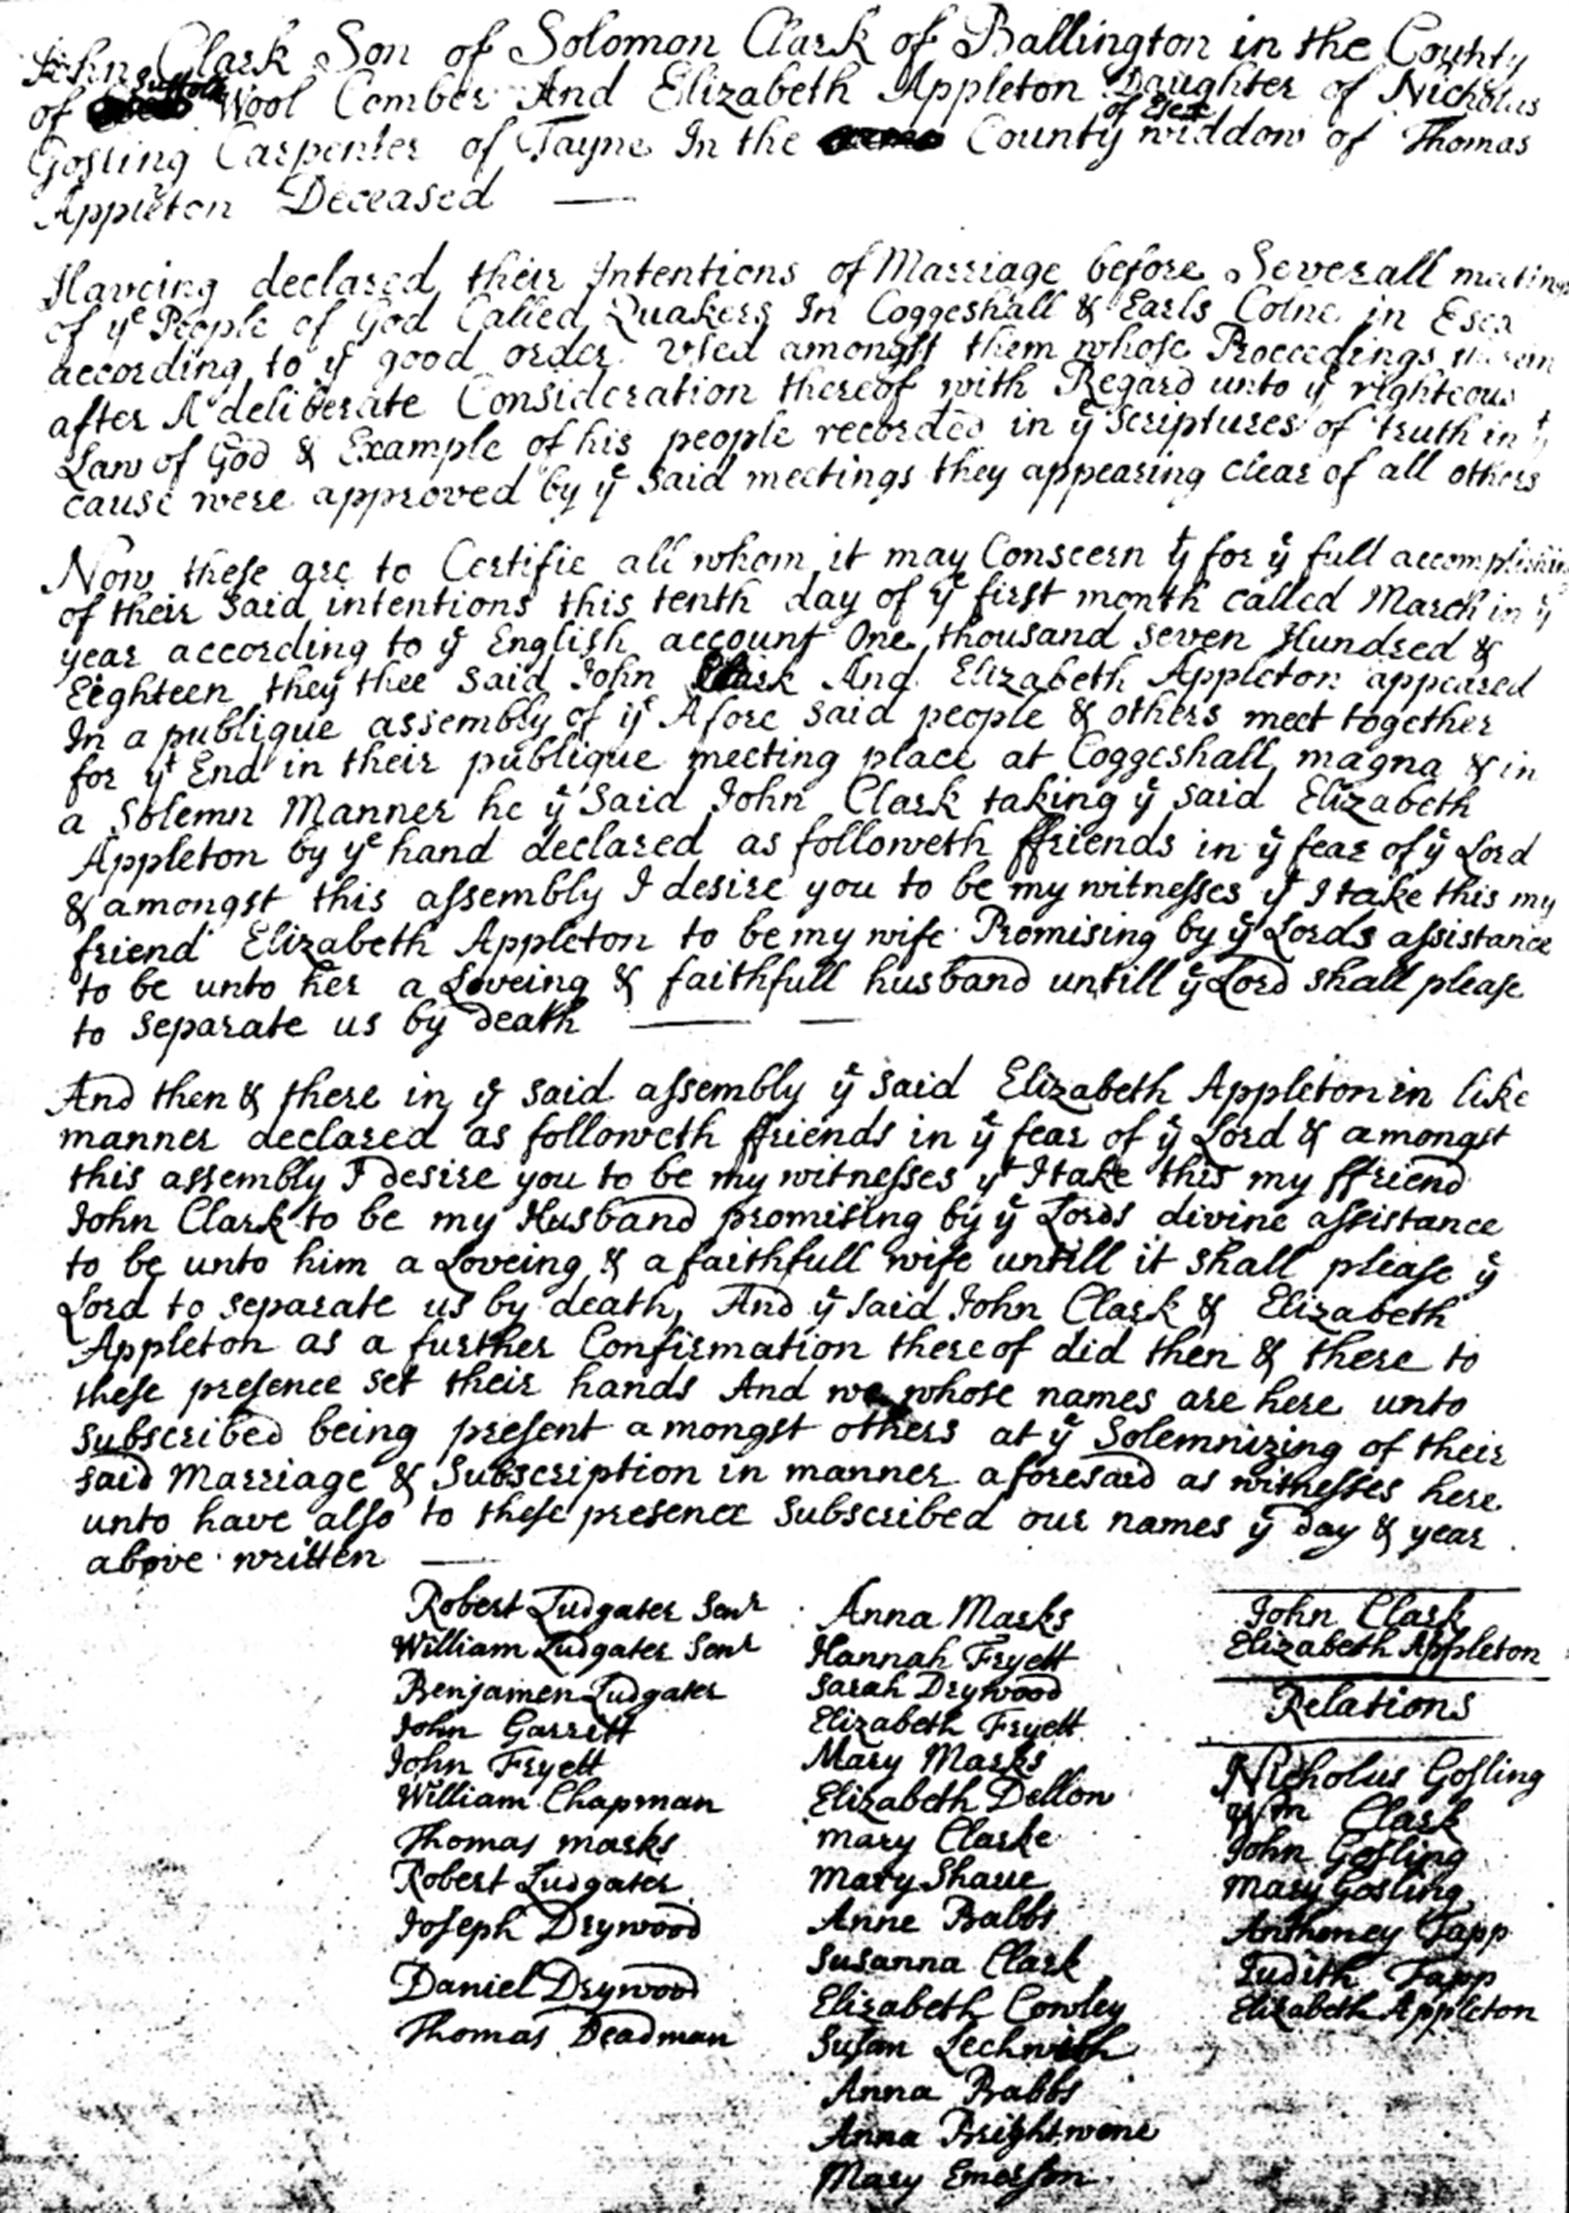 John Clark Son of Solomon Clark of Ballington in the County
of Suffolk Wool Comber And Elizabeth Appleton Daughter of Nicholus
Gosling Carpenter of Tayne In the County of Esex widdow of Thomas
Appleton Deceased —
Haveing declared their Intentions of Marriage before Severall meetings
of ye People of God Called Quakers In Coggeshall & Earls Colne in Esex
according to ye good order Used amongst them whose Proceedings therein
after A deliberate Consideration thereof with Regard unto ye righteous
Law of God & Example of his people recorded in ye scriptures of truth in
cause were approved by ye said meetings they appearing clear of all others
Now these are to Certifie all whom it may Conscern yt for ye full accomplishing
of their said intentions this tenth day of ye first month called March in ye
year according to ye English account One thousand seven Hundred &
Eeighteen they thee said John Clark And Elizabeth Appleton appeared
In a publique assembly of ye Afore said people & others meet together
for yt End in their publique meeting place at Coggeshall magna & in
a Solemn Manner he ye said John Clark taking ye said Elizabeth
Appleton by ye hand declared as followeth ffriends in ye fear of ye Lord
& amongst this assembly I desire you to be my witnesses yt I take this my
friend Elizabeth Appleton to be my wife Promising by ye Lords assistance
to be unto her a Loveing & faithfull husband untill ye Lord shall please
to separate us by death — —
And then & there in ye said assembly ye said Elizabeth Appleton in like
manner declared as followeth ffriends in ye fear of ye Lord & amongst
this assembly I desire you to be my witnesses yt I take this my ffriend
John Clark to be my Husband promising by ye Lords divine assistance
to be unto him a Loveing & a faithfull wife untill it shall please ye
Lord to separate us by death, And ye said John Clark & Elizabeth
Appleton as a further Confirmation thereof did then & there to
these presence set their hands And we whose names are here unto
subscribed being present amongst others at ye Solemnizing of their
said Marriage & Subscription in manner aforesaid as witnesses here
unto have also to these presence subscribed our names ye day & year
above written —
Robert Ludgater Senr
William Ludgater Senr
Benjamen Ludgater
John Garritt
John Fryett
William Chapman
Thomas marks
Robert Ludgater
Joseph Drywood
Daniel Drywood
Thomas Deadman
Anna Marks
Hannah Fryett
Sarah Drywood
Elizabeth Fryett
Mary Marks
Elizabeth Dellon
mary Clarke
Mary Shaue
Anne Babbs
Susanna Clark
Elizabeth Cowley
Susan Lechwith
Anna Babbs
Anna Brightwene
Mary Emerson
John Clark
Elizabeth Appleton
Relations
Nicholus Gosling
Wm Clark
John Gosling
Mary Gosling
Anthoney Tapp
Judith Tapp
Elizabeth Appleton